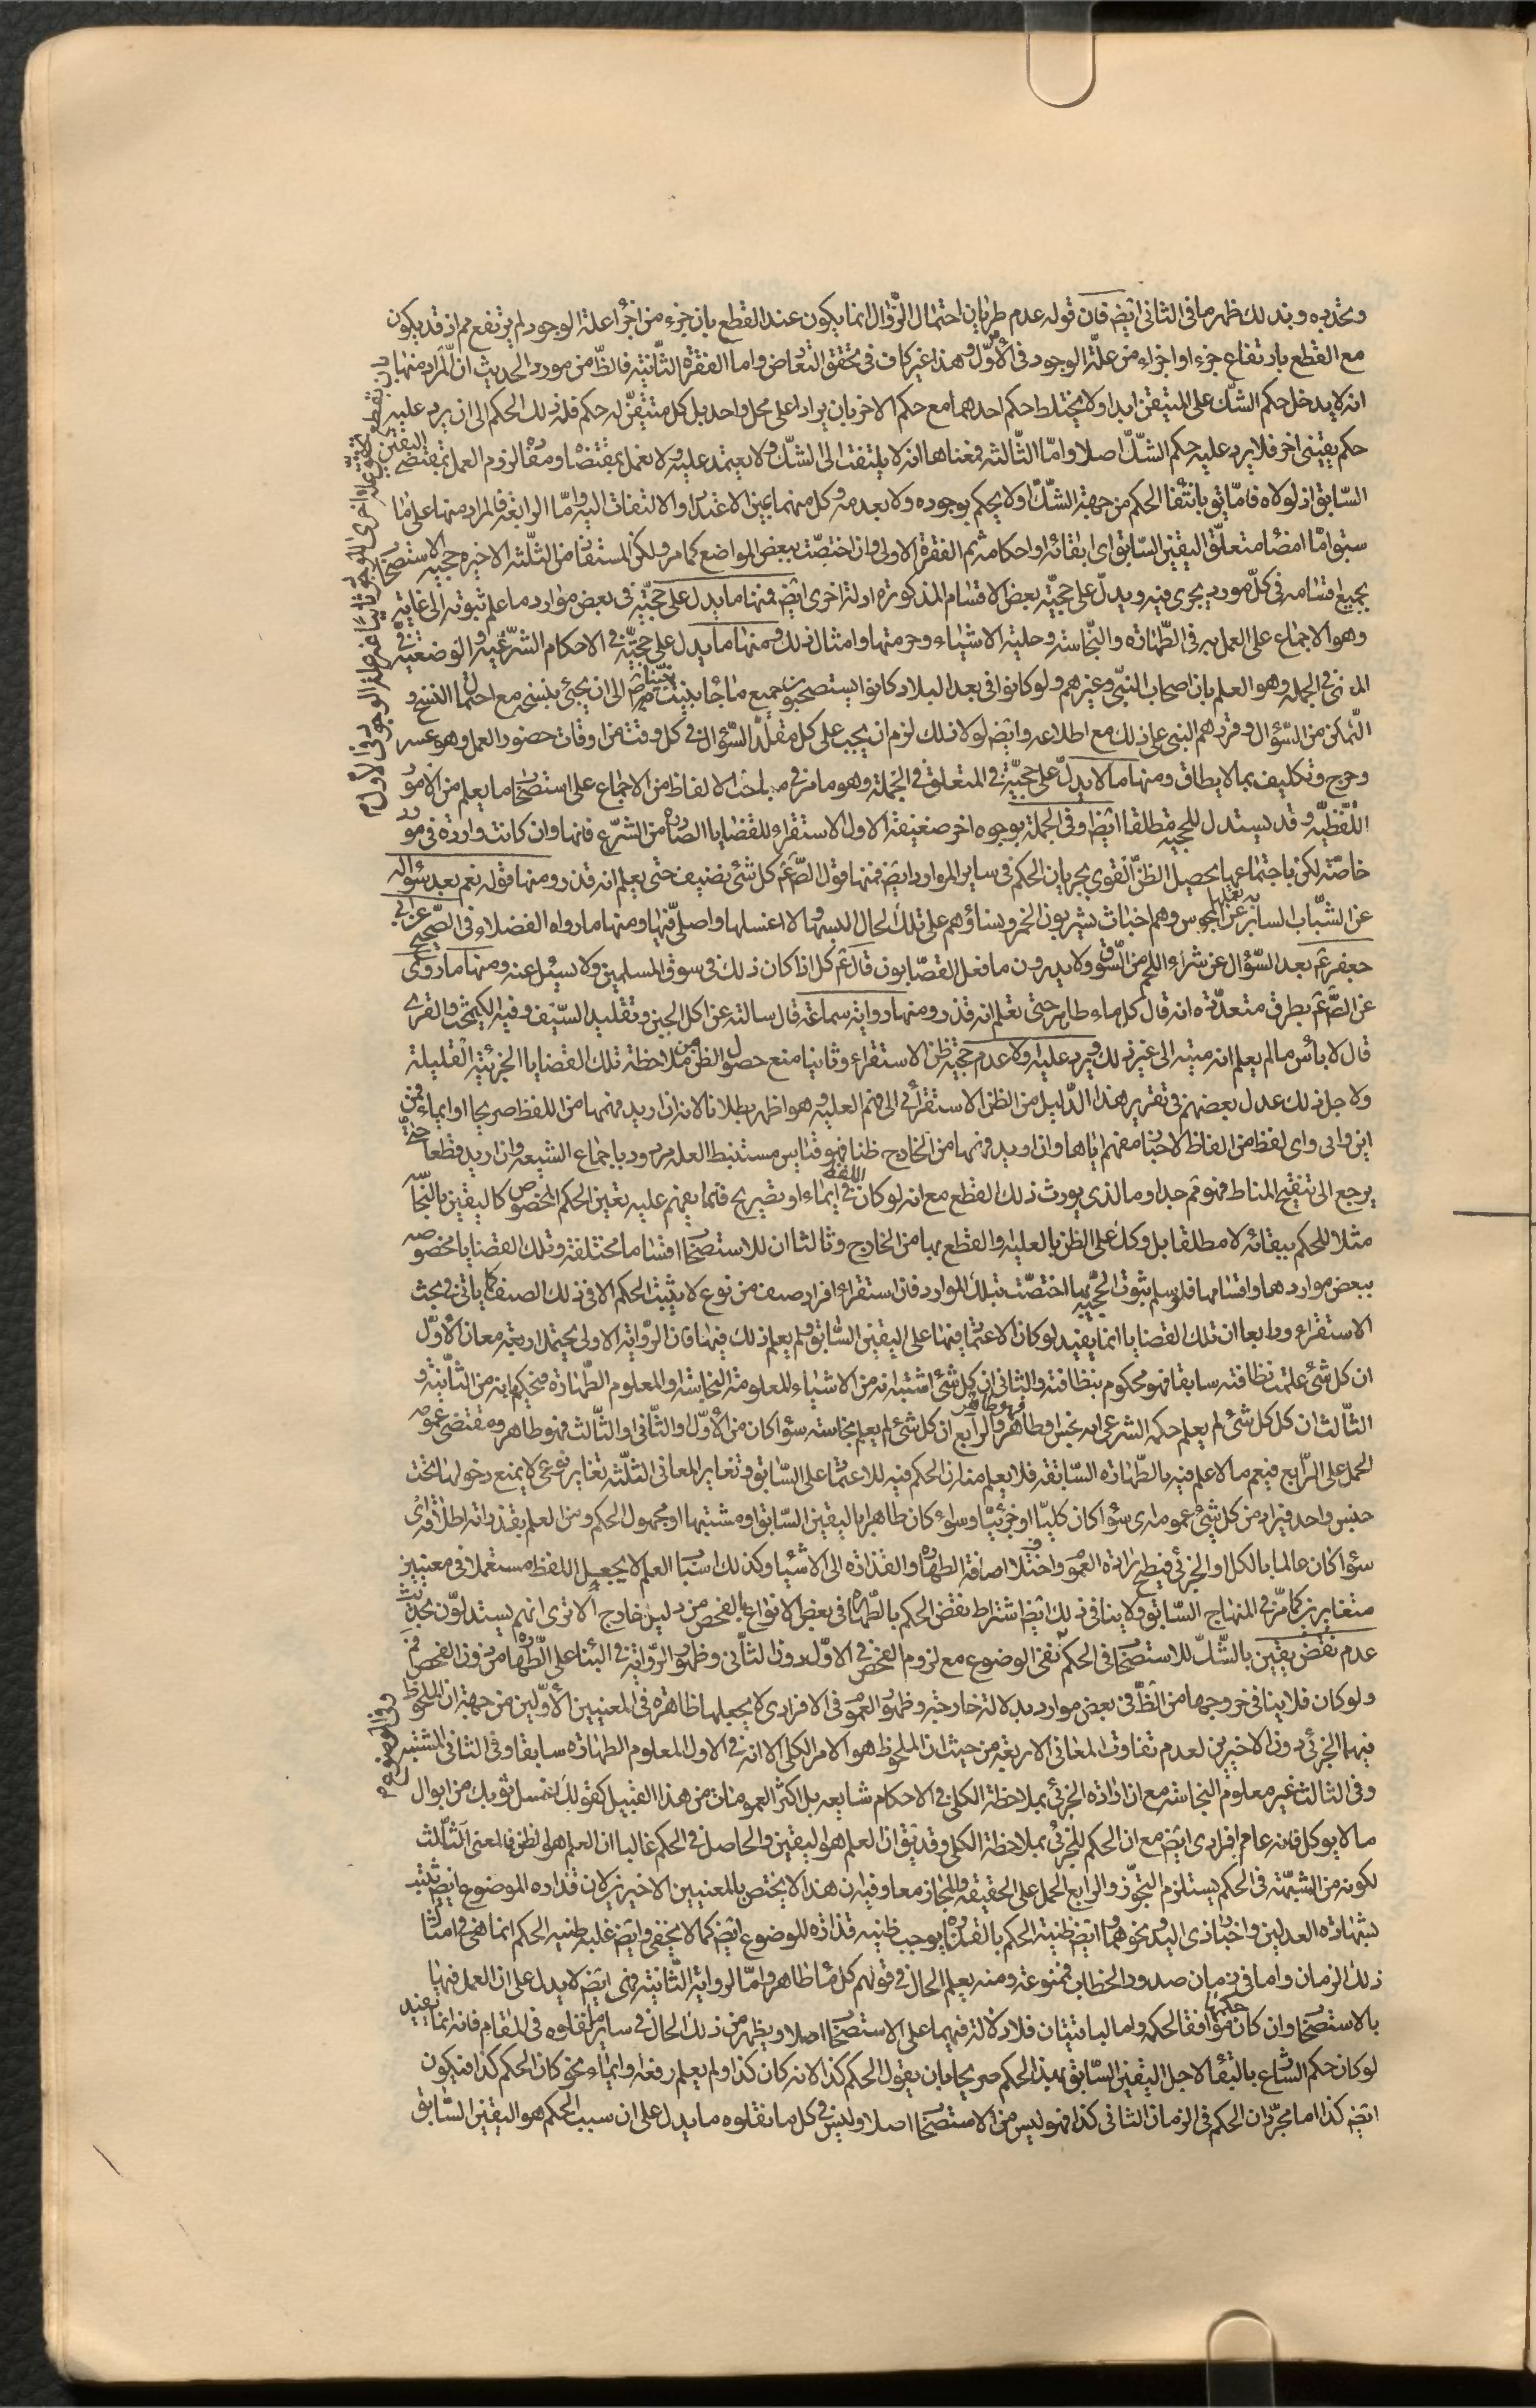 وتحديده وبذلك ظهر ما فى الثانى ايضه فان قوله عدم طريان احتمال الزوال انما يكون عند القطع بان جزء من اجزاء علة الوجود لم يرتفع مم اذ قد يكون
مع القطع بارتفاع جزء او اجزاء من علة الوجود فى الاول وهذا غير كاف فى تحقق التعارض واما الفقرة الثانية فالظ من مورد الحديث ان المراد منها
انه لا يدخل حكم الشك على المتيقن ابدا ولا يختلط حكم احدهما مع حكم الاخر بان يرادا على محل واحد بل كل متيقن له حكم فله ذلك الحكم الى ان يرد عليه
حكم يقينى اخر فلا يرد عليه حكم الشك اصلا واما الثالثه فمعناها انه لا يلتفت الى الشك ولا يعتمد عليه ولا يعمل بمقتضاه ومفاد لزوم العمل بمقتضى اليقين
السابق اذ لولاه فاما يق بانتفاء الحكم من جهة الشك او لا يحكم بوجوده ولا بعدمه وكل منهما عين الاعتداد والالتفات اليه واما الرابعة فالمراد منها على ما
سبق اما امضاء متعلق اليقين السابق اى ابقائه او احكامه ثم الفقرة الاولى وان اختصت ببعض المواضع كما مر ولكن المستفاد من الثلثه الاخيره حجيه الاستصحاب
بجميع اقسامه فى كل مورد يجرى فيه ويدل على حجيته بعض الاقسام المذكورة ادلة اخرى ايضه فمنها ما يدل على حجيته فى بعض موارد ما علم ثبوته الى غاية
وهو الاجماع على العمل به فى الطهارة والنجاسة وحلية الاشياء وحرمتها وامثال ذلك ومنها ما يدل على حجيته فى الاحكام الشرعية والوضعية فى
الى نى فى الجمله وهو العلم بان اصحاب النبى وغيرهم ولو كانوا فى بعد البلاد كانوا يستصحبون جميع ما جاء به نبينا ص الى ان يجئ بنسخه مع احتمال النسخ و
التمكن من السؤال وقررهم النبى على ذلك مع اطلاعه وايضه لولا ذلك لزم ان يجب على كل مقلد السؤال فى كل وقت من اوقات حضور العمل وهو عسر
وحرج وتكليف بما لا يطاق ومنها ما لا يدل على حجيته فى المتعلق فى الجملة وهو ما مر فى مباحث الالفاظ من الاجماع على استصحاب ما يعلم من الامور
اللفظيه وقد يستدل للحجيه مطلقا ايضا وفى الجملة بوجوه اخر ضعيفة الاول الاستقراء للقضايا الصادرة من الشرع فانها وان كانت واردة فى موارد
خاصة لكن باجتماعها يحصيل الظن القوى بجريان الحكم فى ساير الموارد ايضه فمنها قول الصم كل شئ نضيف حتى يعلم انه قذر ومنها قوله نعم بعد سؤاله
عن الشباب السابر يعملها المجوس وهم اخباث يشربون الخمر ونساؤهم على تلك الحال البسها ولا اغسلها واصلى فيها ومنها ما رواه الفضلاء فى الصحيح عن ابى
جعفر عم بعد السؤال عن شراء اللحم من السوق ولا يدرون ما فعل القصابون قال عم كل اذا كان ذلك فى سوق المسلمين ولا يسئل عنه ومنها ما روى
عن الصم بطرق متعددة انه قال كل ماء طاهر حتى تعلم انه قذر ومنها رواية سماعة قال سالته عن اكل الجبن وتقليد السيف وفيه الكيمخت والفرى
قال لا بأس ما لم يعلم انه ميته الى غير ذلك ويرد عليه اولا عدم حجية ظن الاستقراء وثانيا منع حصول الظن من ملاحظة تلك القضايا الجزئية القليلة
ولاجل ذلك عدل بعضهم فى تقرير هذا الدليل من الظن الاستقرائى الى فهم العليه وهو اظهر بطلانا لانه ان اريد فهمها من اللفظ صريحا او ايماء فمن
اين وانى واى لفظ من الفاظ الاخبار مفهم اياها وان اريد فهمها من الخارج ظنا فهو قياس مستنبط العله مردود باجماع الشيعه وان اريد قطعا حتى
يرجع الى تنقيح المناط فهو فم جدا وما الذى يورث ذلك القطع مع انه لو كان فى اللفظ ايماء او تصريح فلما يفهم عليه تعين الحكم المخصوص كاليقين بالنجاسة
مثلا للحكم ببقائه لا مطلقا بل وكل على الظن بالعلية والقطع بها من الخارج وثالثا ان للاستصحاب اقساما مختلفة وتلك القضايا مخصوصه
ببعض مواردها واقسامها فلو سلم ثبوت الحجيه بها اختصت بتلك الموارد فان استقراء افراد صنف من نوع لا يثبت الحكم الا فى ذلك الصنف كما ياتى فى بحث
الاستقراء ورابعا ان تلك القضايا انما يفيد لو كان الاعتماد فيها على اليقين السابق ولم يعلم ذلك فيها فان الرواية الاولى يحتمل اربعة معان الاول
ان كل شئ علمت نظافته سابقا فهو محكوم بنظافته والثانى ان كل شئ اشتبه انه من الاشياء المعلومة النجاسة او المعلوم الطهارة فيحكم بانه من الثانية و
الثالث ان كل كل شئ لم يعلم حكمه الشرعى انه نجس او طاهر فهو طاهر والرابع ان كل شئ لم يعلم نجاسته سواء كان من الاول او الثانى والثالث فهو طاهر ومقتضى عمومه
الحمل على الرابع فيعم ما لا علم فيه بالطهارة السابقه فلا يعلم منه ان الحكم فيه للاعتماد على السابق وتغاير المعانى الثلثه تغاير نوعى لا يمنع دخولها تحت
جنس واحد فيراد من كل شئ عموم اى سواء كان كليا او جزئيا وسواء كان طاهرا باليقين السابق او مشتبها او مجهول الحكم ومن العلم بقذارته اطلاقه اى
سواء كان عالما بالكل او الجزئى فيصح ارادة العموم واختلاف اضافة الطهارة والقذارة الى الاشياء وكذلك اسباب العلم لا يجعل اللفظ مستعملا فى معنيين
متغايرين كما مر فى المنهاج السابق ولا ينافى ذلك ايضه اشتراط بعض الحكم بالطهارة فى بعض الانواع بالفحص من دليل خارج الا ترى انهم يستدلون بحديث
عدم نقض يقين بالشك للاستصحاب فى الحكم نفى الوضوع مع لزوم الفحص فى الاول دون الثانى وظهور الرواية فى البناء على الطهارة من دون الفحص فم
ولو كان فلا ينافى خروجها من الظ فى بعض موارد بدلالة خارجية وظهور العموم فى الافرادى لا يجعلها ظاهرة فى المعنيين الاولين من جهة ان الملحوظ
فيهما الجزئى دون الاخيرين لعدم تفاوت المعانى الاربعة من حيث ان الملحوظ هو الامر الكلى الا انه فى الاول المعلوم الطهارة سابقا وفى الثانى المشتبه
وفى الثالث غير معلوم النجاسة مع ان ارادة الجزئى بملاحظة الكلى فى الاحكام شايعه بل اكثر العمومات من هذا القبيل كقولك اغسل ثوبك من ابوال
ما لا يوكل فانه عام افرادى ايضه مع ان الحكم للجزئى بملاحظة الكلى وقد يق ان العلم هو اليقين والحاصل فى الحكم غالبا ان العلم هو الظن فالمعنى الثالث
لكونه من الشبهة فى الحكم يستلزم التجوز والرابع الحمل على الحقيقه والمجاز معا وفيه ان هذا لا يختص بالمعنيين الاخيرين لان قذاره الموضوع ايضه تثبت
بشهادة العدلين واخبار ذى اليد ونحوهما وايضه ظنية الحكم بالقذارة يوجب ظنيه قذارة الموضوع ايضه كما لا يخفى وايضه غلبه ظنيه الحكم انما هى فى امثال
ذلك الزمان واما فى زمان صدور الخطاب فممنوعة ومنه يعلم الحال فى قولهم كل ماء طاهر واما الرواية الثانية فهى ايضه لا يدل على ان العمل فيها
بالاستصحاب وان كان حكمها موافقا لحكمه واما الباقيتان فلا دلالة فيهما على الاستصحاب اصلا ويظهر من ذلك الحال فى ساير ما نقلوه فى المقام فانه انما يفيد
لو كان حكم الشارع بالبقاء لاجل اليقين السابق بهذا الحكم صريحا بان يقول الحكم كذا لانه كان كذا ولم يعلم رفعه وايماء نحو كان الحكم كذا فيكون
ايضه كذا اما مجرد ان الحكم فى الزمان الثانى كذا فهو ليس من الاستصحاب اصلا وليس فى كل ما نقلوه ما يدل على ان سبب الحكم هو اليقين السابق